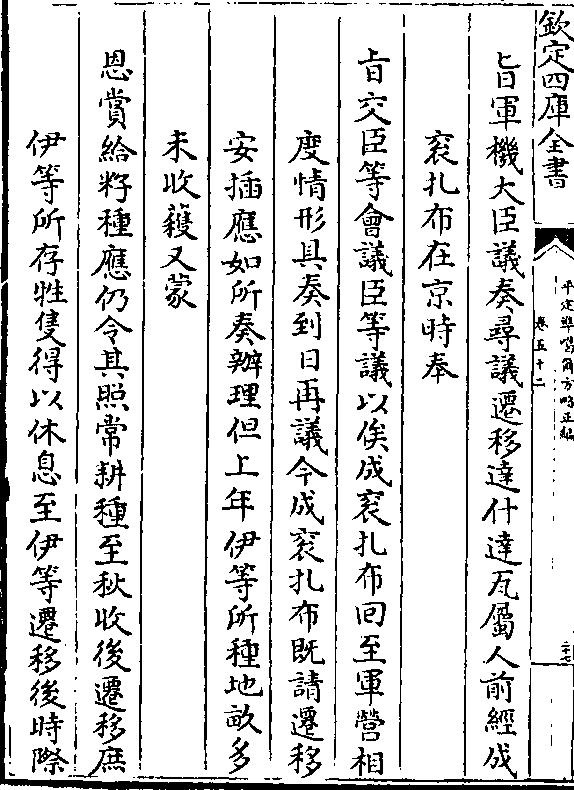 欽定四庫全書
平定準噶爾方略正編
卷五十二
二十七
旨軍機大臣議奏尋議遷移達什達瓦屬人前經成
衮扎布在京時奉
旨交臣等會議臣等議以俟成衮扎布回至軍營相
度情形具奏到日再議今成衮扎布既請遷移
安插應如所奏辦理但上年伊等所種地畝多
未收穫又蒙
恩賞給籽種應仍令其照常耕種至秋收後遷移庶
伊等所存牲隻得以休息至伊等遷移後時際